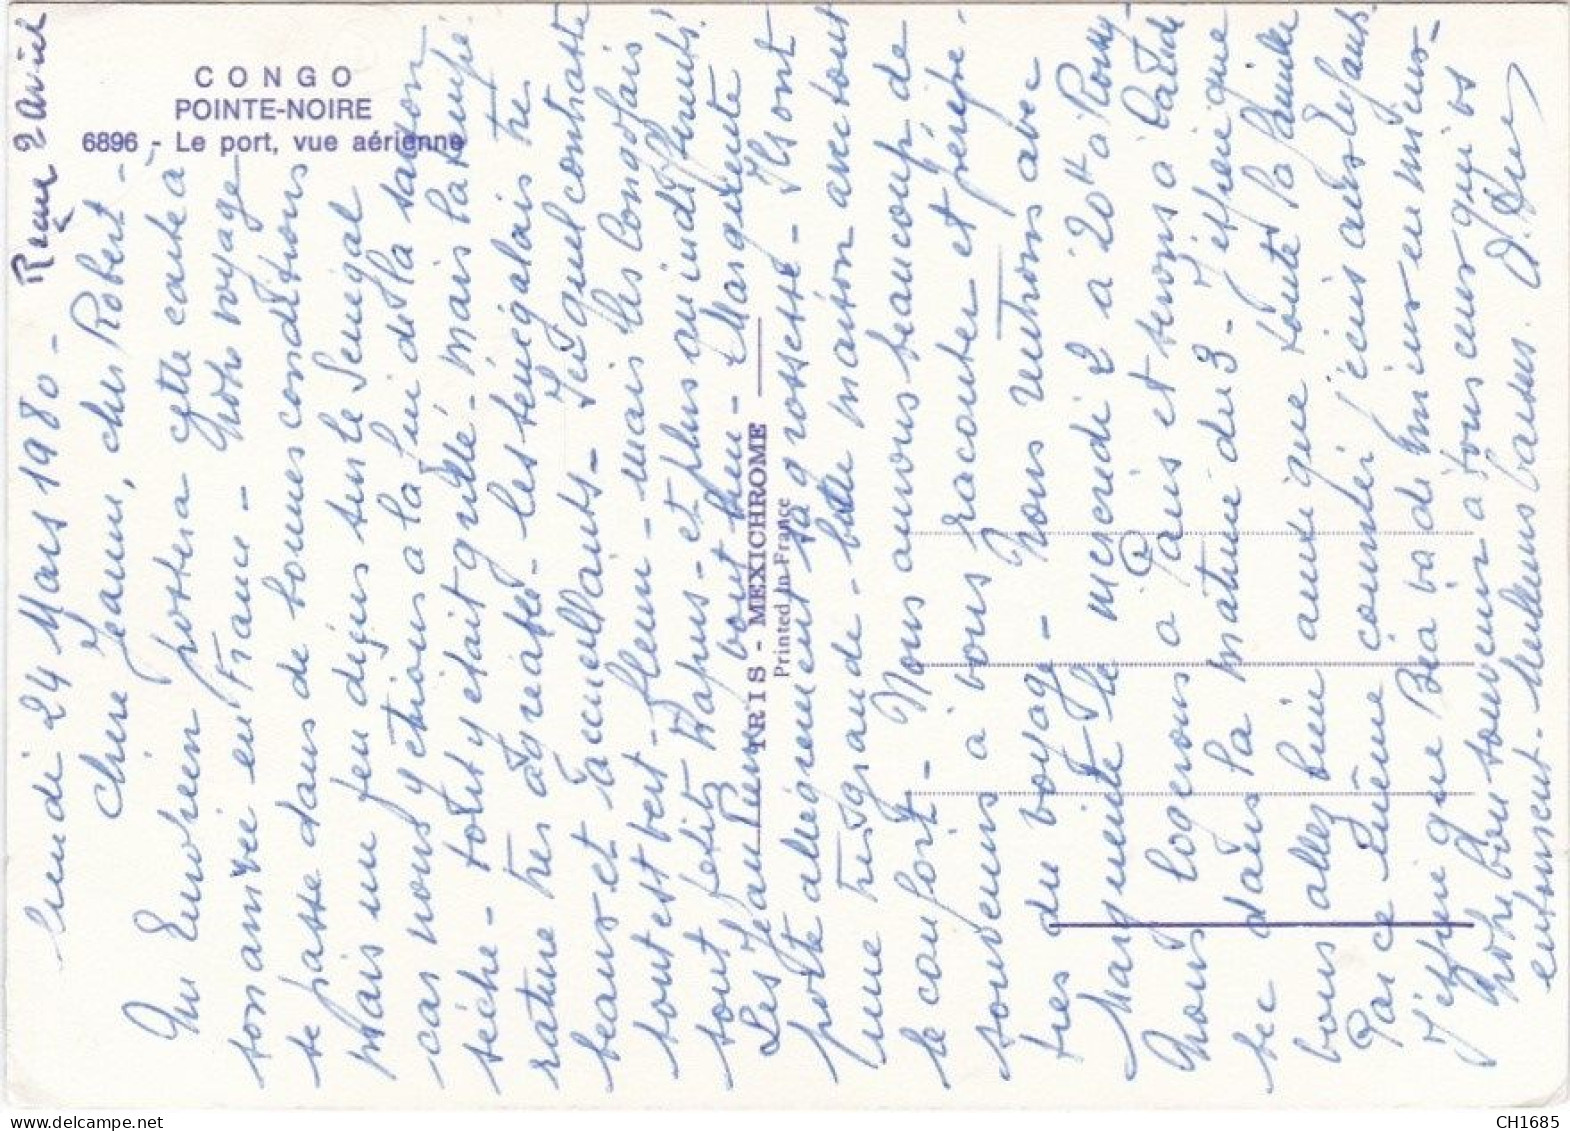 CONGO
POINTE-NOIRE
6896 - Le port, vue aérienne
IRIS - MEXICHROME
Printed in France
Reçue 2 avril
lundi 24 Mars 1980 -
Chère Jeanne, cher Robert -
Un Eurohéen postera cette carte à
son arrivée en France - Notre voyage
se passe dans de bonnes conditions
Mais un peu déçus sur le Sénégal
car nous y étions à la fin de la saison
sèche - tout y était grillé - mais la tempé
rature très agréable - les sénégalais très
beaux et accueillants - Ici quel contraste
tout est vert - fleuri - mais les Congolais
tout petits trapus - et plus qu'indifférents!
Les Jean Pierre vont bien - Marguerite
porte allègrement sa grossesse - Ils ont
une très grande - belle maison avec tout
le confort - Nous aurons beaucoup de
souvenirs à vous raconter et
du voyage - Nous rentrons avec
Marguerite le mercredi 2 à 20H à Roissy -
Nous logerons à Paris et serons à
dans la matinée du 3 - J'espère que
vous allez bien ainsi que toute la famille
Par ce même courrier j'écris aux Enfants.
J'espère que Béa va de mieux en mieux -
Notre bon souvenir à tous ceux qui vs
entourent. Meilleurs baisers.